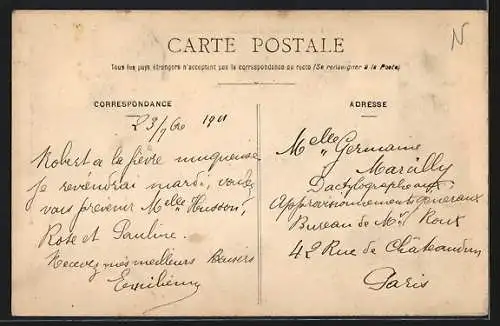 CARTE POSTALE
Tous les pays étrangers n'acceptent pas la correspondance au recto (Se renseigner à la Poste)
CORRESPONDANCE
23/9bre 1911
Robert a la fièvre muqueuse
je reviendrai mardi, voulez
vous prévenir Melle Husson,
Rose et Pauline.
Recevez mes meilleurs baisers
ADRESSE
Melle Germaine
Marailly
Dactylographe aux
Approvisionnements généraux
Bureau de Mr Roux
42 Rue de Châteaudun
Paris
N